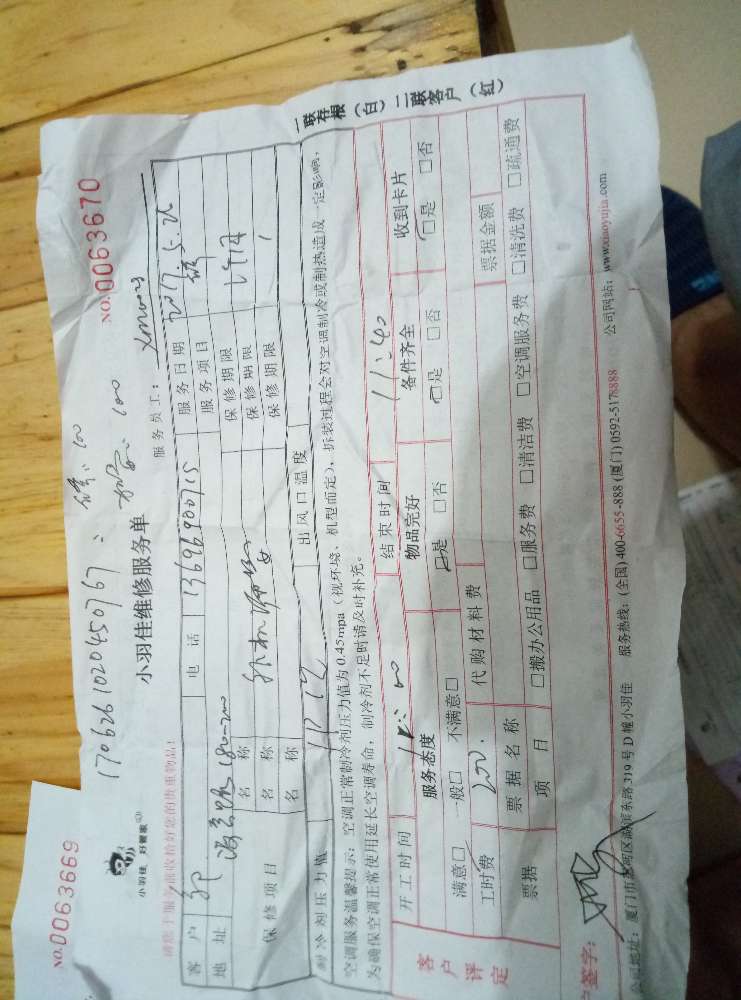 NO.0063669
NO.0063670
17062610204507​67:
100
100
小羽佳 好管家
小羽佳维修服务单
服务员工: xmwx03
客户 电话 13696900715 服务日期 2017.5.26
地址 180-200 服务项目
保修项目 名称 保修期限
名称 保修期限
名称 保修期限
制冷剂压力值 出风口温度
空调服务温馨提示: 空调正常制冷剂压力值为0.45mpa(视环境、机型而定), 拆装过程会对空调制冷或制热造成一定影响,
为确保空调正常使用延长空调寿命, 制冷剂不足时请及时补充。
客户评定 开工时间 结束时间 11:40
服务态度 物品完好 备件齐全 收到卡片
满意□ 一般□ 不满意□ □是 □否 □是 □否 □是 □否
工时费 200. 代购材料费
票据 票据名称 票据金额
项目 □搬办公用品 □服务费 □清洁费 □空调服务费 □清洗费 □疏通费
签字:
公司地址: 厦门市思明区湖滨东路319号D幢小羽佳 服务热线: (全国)400-6655-888 (厦门)0592-5178888 公司网站: www.xiaoyujia.com
一联存根(白) 二联客户(红)